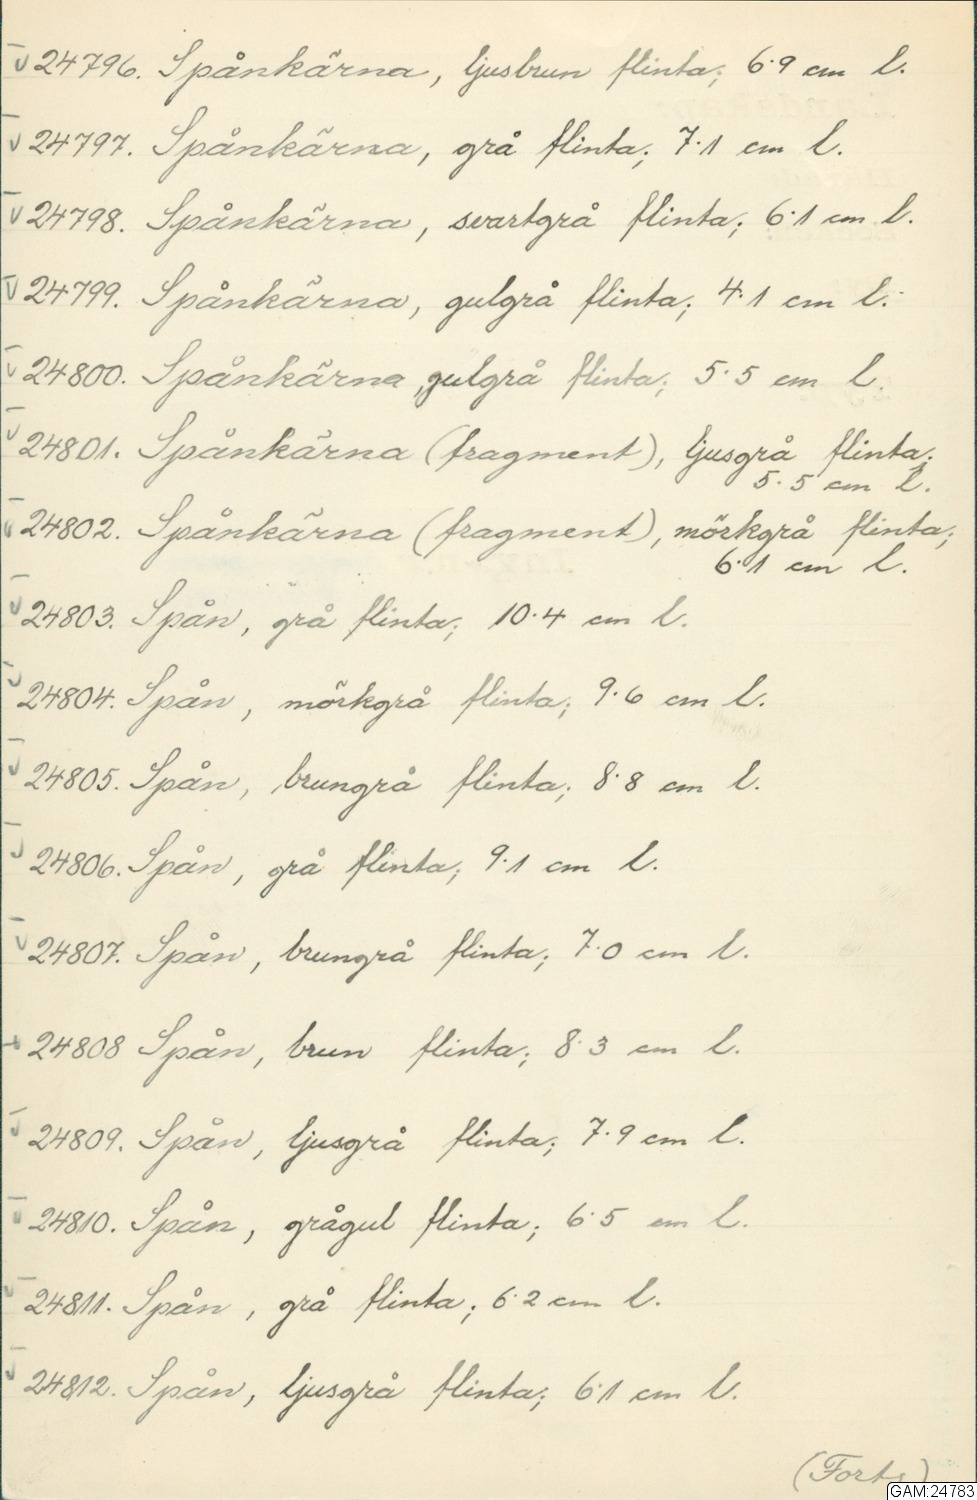 24796. Spånkärna, ljusbrun flinta; 6.9 cm l.
24797. Spånkärna, grå flinta; 7.1 cm l.
24798. Spånkärna, svartgrå flinta; 6.1 cm l.
24799. Spånkärna, gulgrå flinta; 4.1 cm l.
24800. Spånkärna, gulgrå flinta; 5.5 cm l.
24801. Spånkärna (fragment), ljusgrå flinta;
5.5 cm l.
24802. Spånkärna (fragment), mörkgrå flinta;
6.1 cm l.
24803. Spån, grå flinta; 10.4 cm l.
24804. Spån, mörkgrå flinta; 9.6 cm l.
24805. Spån, brungrå flinta; 8.8 cm l.
24806. Spån, grå flinta; 9.1 cm l.
24807. Spån, brungrå flinta; 7.0 cm l.
24808 Spån, brun flinta; 8.3 cm l.
24809. Spån, ljusgrå flinta; 7.9 cm l.
24810. Spån, grågul flinta; 6.5 cm l.
24811. Spån, grå flinta; 6.2 cm l.
24812. Spån, ljusgrå flinta; 6.1 cm l.
(Forts.)
GAM:24783